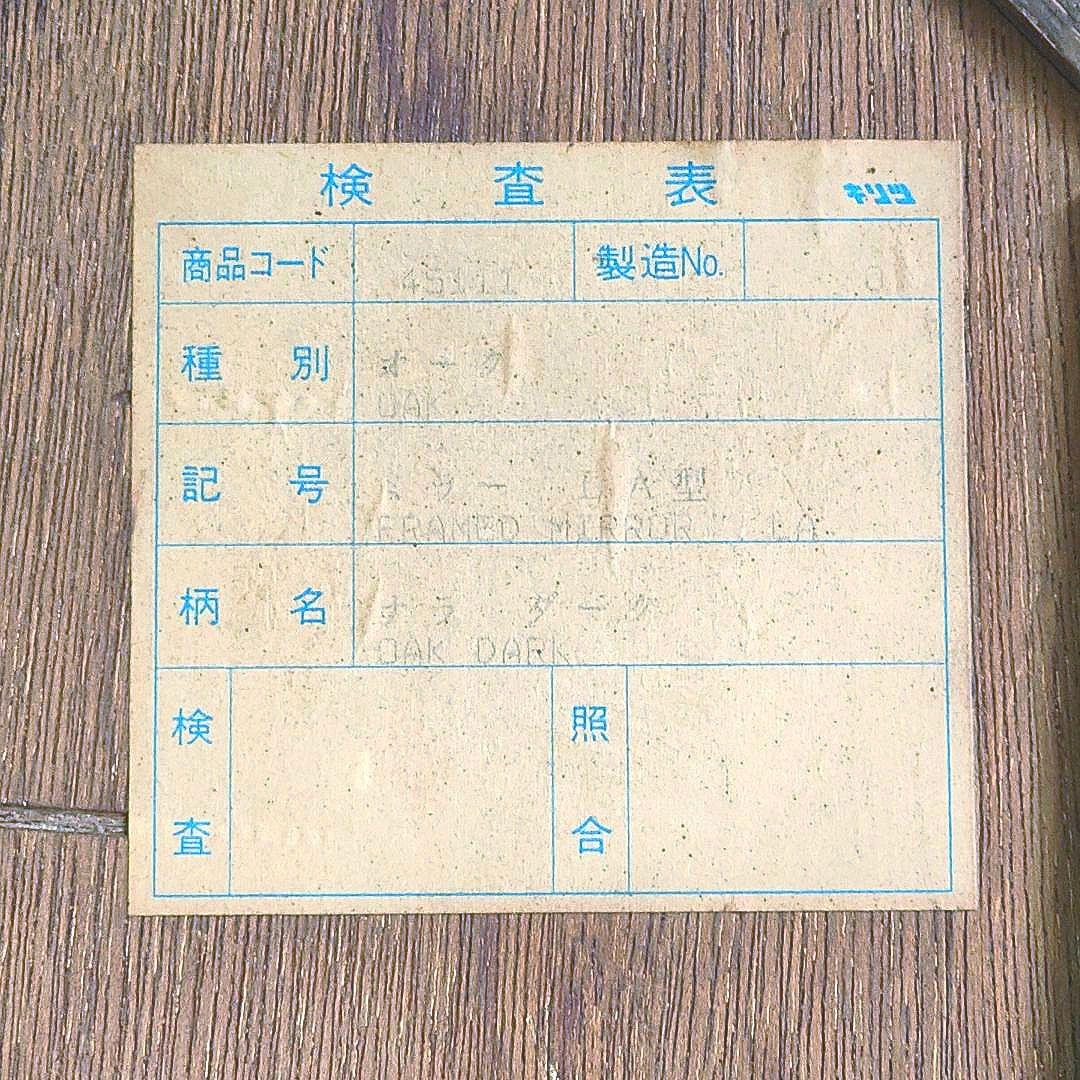 検査表 キリツ
商品コード 45111 製造No.
種別 オーク
OAK
記号 ミラー 1A型
FRAMED MIRROR 1A
柄名 ナラ ダーク
OAK DARK
検査 照合